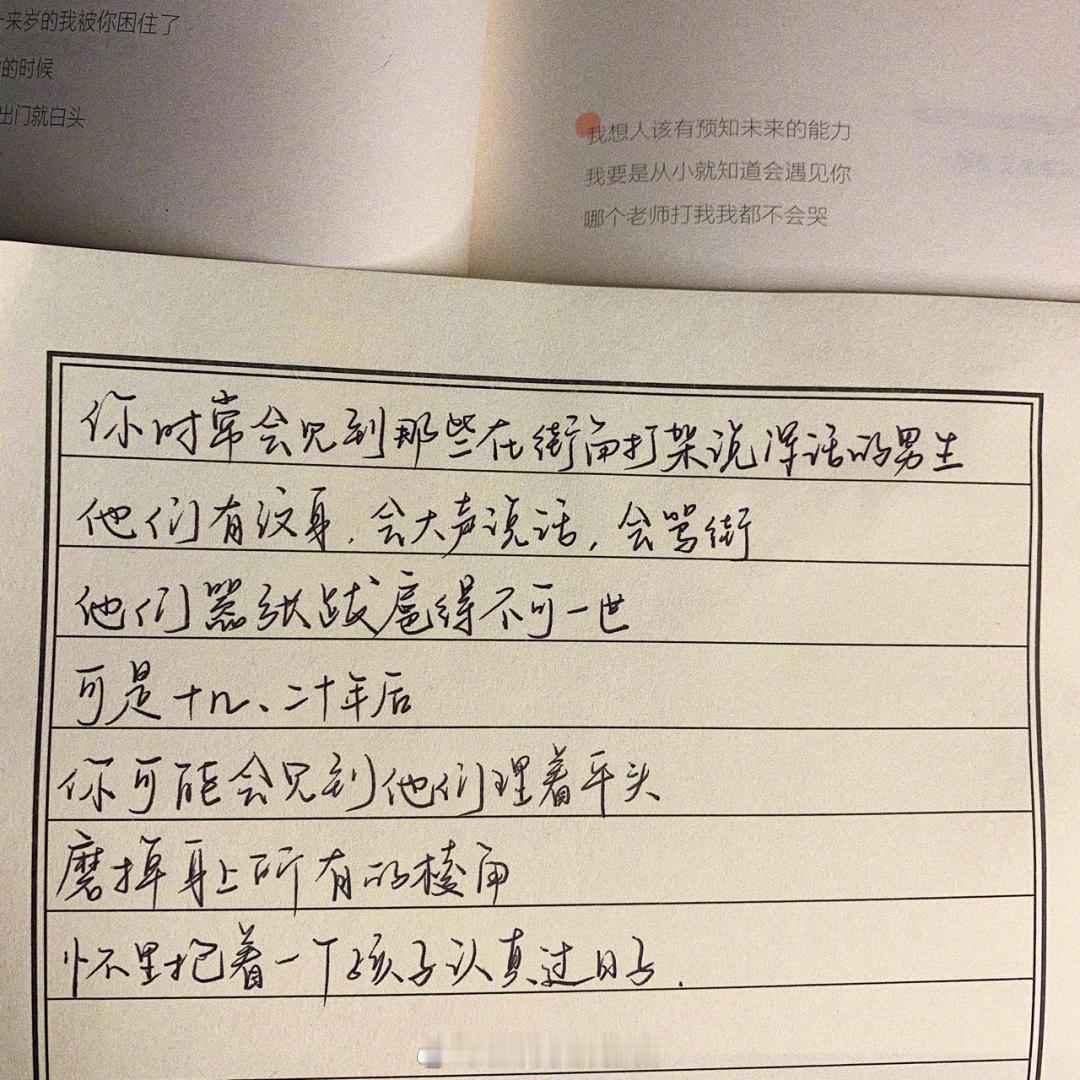 十来岁的我被你困住了
的时候
出门就白头
我想人该有预知未来的能力
我要是从小就知道会遇见你
哪个老师打我我都不会哭
你时常会见到那些在街角打架说浑话的男生
他们有纹身，会大声说话，会骂街
他们嚣张跋扈得不可一世
可是十几、二十年后
你可能会见到他们理着平头
磨掉身上所有的棱角
怀里抱着一个孩子认真过日子.